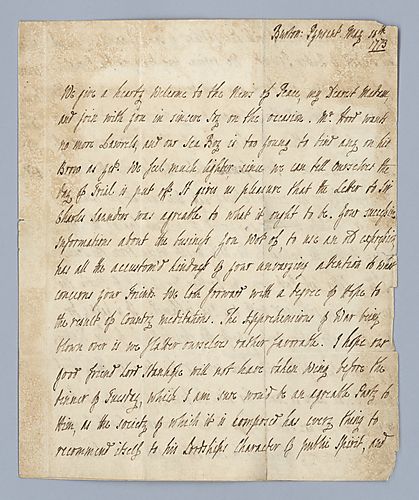 Burton: Pynsent May 18th
1773
We give a hearty Welcome to the News of Peace, my Dearest Madam
and join with you in sincere Joy on the occasion. Mr. Hood wants
no more Lawrels, and our Sea Boy is too young to bind any on his
Brow as yet. We feel much lighter since we can tell ourselves the
day of Trial is put off. It gives us pleasure that the Letter to Sir
Charles Saunders was agreable to what it ought to be. Your succeeding
Informations about the business you wot of to use an old expression
has all the accustom'd kindness of your unvarying attention to what
concerns your Friends. We look forward with a degree of Hope to
the result of Country meditations. The Apprehensions of War being
blown over is we flatter ourselves rather favorable. I hope our
good Friend Lord Stanhope will not have taken Wing before the
dinner of Tuesday, which I am sure wou'd be an agreable Party to
Him as the Society of which it is composed has every thing to
recommend itself to his Lordships Character of public Spirit, and